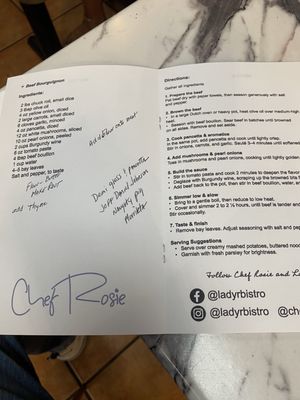 Beef Bourguignon
Ingredients:
2 lbs chuck roll, small dice
3 tbsp olive oil
4 oz yellow onion, diced
2 large carrots, small diced
6 cloves garlic, minced
4 oz pancetta, diced
12 oz white mushrooms, sliced
10 pearl onions, peeled
2 cups Burgundy wine
6 oz tomato paste
4 tbsp beef bouillon
1 cup water
4–6 bay leaves
Salt and pepper, to taste
Flour - Butter
Make Roux
add Thyme
Add flour onto meat
Demi glass
Jeff David Johnson
Chef Rosie
Directions:
Gather all ingredients
1. Prepare the beef
Pat beef dry with paper towels, then season generously with salt
and pepper.
2. Brown the beef
In a large Dutch oven or heavy pot, heat olive oil over medium-high
heat.
Season with beef bouillon. Sear beef in batches until browned
on all sides. Remove and set aside.
3. Cook pancetta & aromatics
In the same pot, add pancetta and cook until lightly crisp.
Stir in onions, carrots, and garlic. Sauté 3–4 minutes until softened
4. Add mushrooms & pearl onions
Toss in mushrooms and pearl onions, cooking until lightly golden
5. Build the sauce
Stir in tomato paste and cook 2 minutes to deepen the flavor
Deglaze with Burgundy wine, scraping up the browned bits
Add beef back to the pot, then stir in beef bouillon, water,
6. Simmer low & slow
Bring to a gentle boil, then reduce to low heat.
Cover and simmer 2 to 2 ½ hours, until beef is tender and
Stir occasionally.
7. Taste & finish
Remove bay leaves. Adjust seasoning with salt and pepper
Serving Suggestions
Serve over creamy mashed potatoes, buttered noodles
Garnish with fresh parsley for brightness.
Follow Chef Rosie and
@ladyrbistro
@ladyrbistro